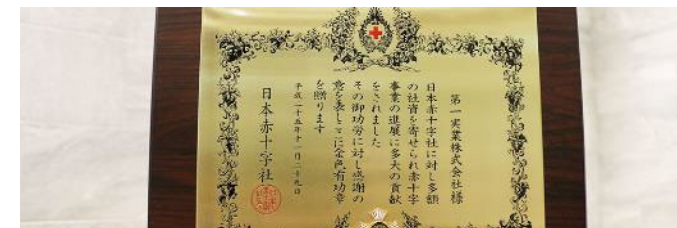 第一実業株式会社様
日本赤十字社に対し多額
の社資を寄せられ赤十字
事業の進展に多大の貢献
をされました
その御功労に対し感謝の
意を表しここに金色有功章
を贈ります
平成二十五年十一月二十九日
日本赤十字社